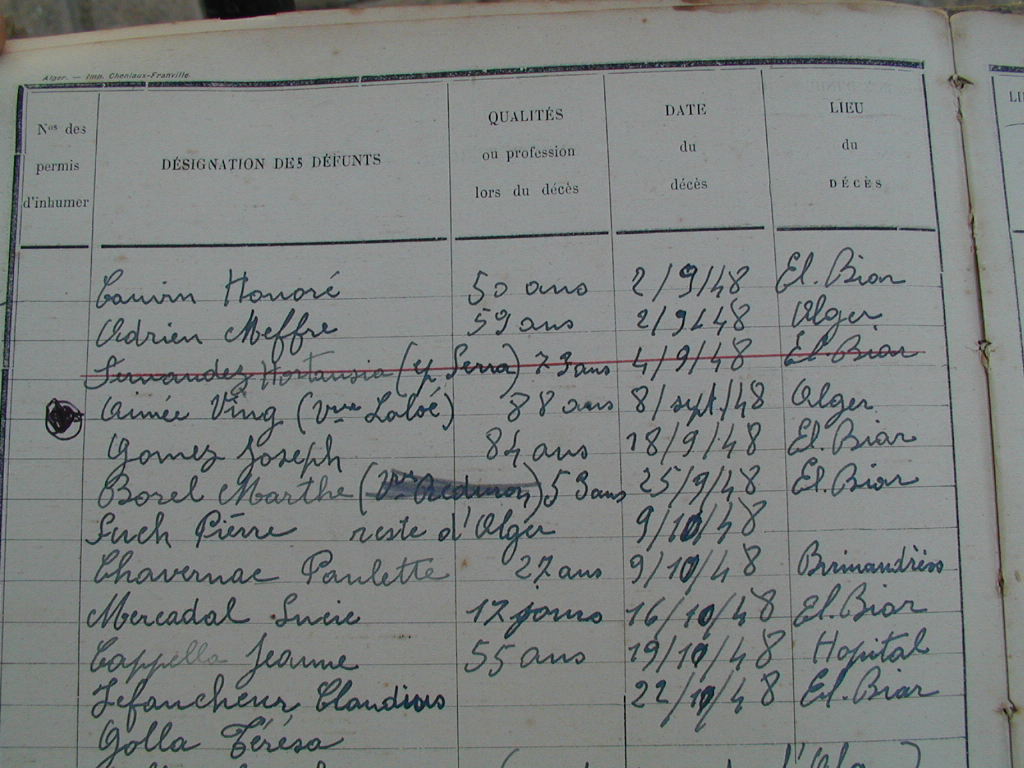 Alger. — Imp. Cheniaux-Franville
Nos des permis d'inhumer
DÉSIGNATION DES DÉFUNTS
QUALITÉS ou profession lors du décès
DATE du décès
LIEU du DÉCÈS
LI
Honoré 50 ans 2/9/48 El. Biar
Adrien Meffre 59 ans 2/9/48 Alger
Fernandez Hortansia (ep Serra) 73 ans 4/9/48 El. Biar
Aimée Ving (Vve Laloé) 88 ans 8/sept./48 Alger
Gomez Joseph 84 ans 18/9/48 El. Biar
Borel Marthe (Vve 53 ans 25/9/48 El. Biar
Fuch Pierre reste d'Alger 9/10/48
Chavernac Paulette 27 ans 9/10/48 Birmandreïs
Mercadal Lucie 17 jours 16/10/48 El. Biar
Cappella Jeanne 55 ans 19/10/48 Hopital
Lefaucheur Claudius 22/10/48 El. Biar
Golla Térésa